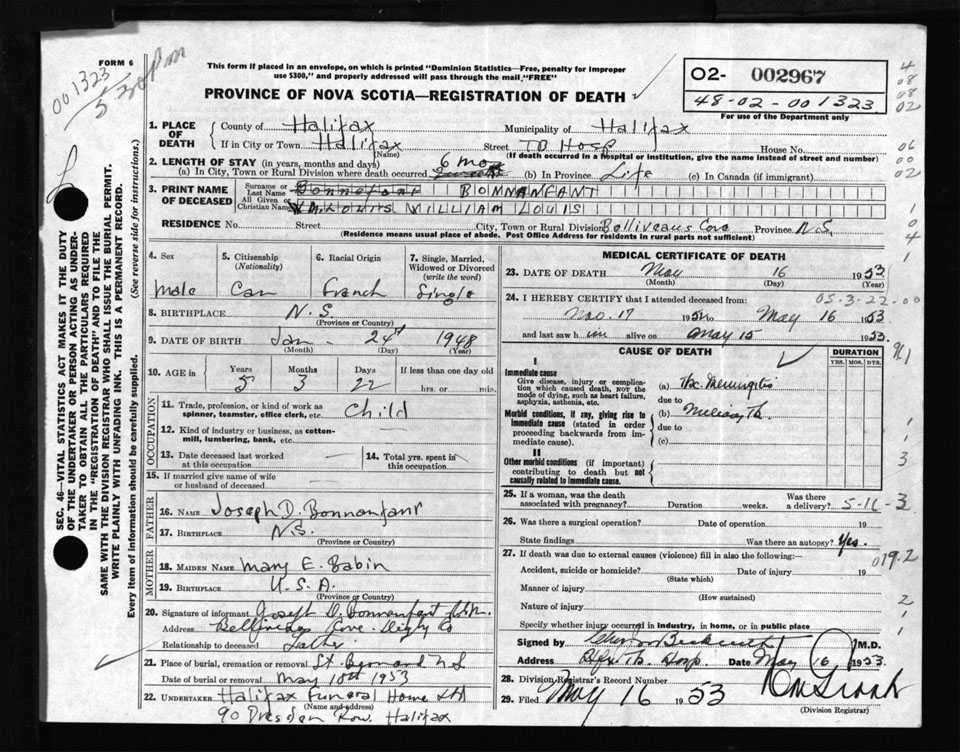 FORM 6
001323
5
30 Pm
This form if placed in an envelope, on which is printed "Dominion Statistics—Free, penalty for improper
use $300," and properly addressed will pass through the mail, "FREE"
PROVINCE OF NOVA SCOTIA—REGISTRATION OF DEATH
02- 002967
48-02-001323
For use of the Department only
1. PLACE OF DEATH { County of Halifax Municipality of Halifax
If in City or Town Halifax Street T B Hosp House No.
(Name) (If death occurred in a hospital or institution, give the name instead of street and number)
2. LENGTH OF STAY (in years, months and days)
(a) In City, Town or Rural Division where death occurred 6 mos (b) In Province Life (c) In Canada (if immigrant)
3. PRINT NAME OF DECEASED { Surname or Last Name Bonnefant BONNANFANT
All Given or Christian Names Wm. Louis WILLIAM LOUIS
RESIDENCE No. Street City, Town or Rural Division Belliveaus Cove Province N.S.
(Residence means usual place of abode. Post Office Address for residents in rural parts not sufficient)
4. Sex
male
5. Citizenship
(Nationality)
Can
6. Racial Origin
French
7. Single, Married,
Widowed or Divorced
(write the word)
Single
8. BIRTHPLACE N.S.
(Province or Country)
9. DATE OF BIRTH Jan. 24st 1948
(Month) (Day) (Year)
10. AGE in { Years Months Days If less than one day old
5 3 22 hrs. or min.
OCCUPATION
11. Trade, profession, or kind of work as
spinner, teamster, office clerk, etc. Child
12. Kind of industry or business, as cotton-
mill, lumbering, bank, etc.
13. Date deceased last worked
at this occupation
14. Total yrs. spent in
this occupation
15. If married give name of wife
or husband of deceased
FATHER
16. NAME Joseph D. Bonnanfant
17. BIRTHPLACE N.S.
(Province or Country)
MOTHER
18. MAIDEN NAME Mary E. Babin
19. BIRTHPLACE U.S.A.
(Province or Country)
20. Signature of informant Joseph D. Bonnanfant
Address Cove Digby Co
Relationship to deceased Father
21. Place of burial, cremation or removal St. Bernard N.S.
Date of burial or removal May 18th 1953
22. UNDERTAKER Halifax Funeral Home Ltd
(Name and address)
90 Dresden Row. Halifax
MEDICAL CERTIFICATE OF DEATH
23. DATE OF DEATH May 16 1953
(Month) (Day) (Year)
24. I HEREBY CERTIFY that I attended deceased from: 05-3-22-00
Nov. 17 1952 to May 16 1953
and last saw him alive on May 15 1953.
CAUSE OF DEATH
DURATION
YRS. MOS. DYS.
I
Immediate cause
Give disease, injury or complica-
tion which caused death, NOT the
mode of dying, such as heart failure,
asphyxia, asthenia, etc.
(a) Tbc. Meningitis
due to
Morbid conditions, if any, giving rise to
immediate cause (stated in order
proceeding backwards from im-
mediate cause).
(b) Miliary Tb.
due to
(c)
II
Other morbid conditions (if important)
contributing to death but not
causally related to immediate cause.
25. If a woman, was the death
associated with pregnancy? Duration weeks. Was there
a delivery? 5-16-3
26. Was there a surgical operation? Date of operation 19
State findings Was there an autopsy? Yes.
27. If death was due to external causes (violence) fill in also the following:— 019.2
Accident, suicide or homicide? Date of injury 19
(State which)
Manner of injury
(How sustained)
Nature of injury
Specify whether injury occurred in industry, in home, or in public place
Signed by M.D.
Address Hfx Tb. Hosp. Date May 16 1953.
28. Division Registrar's Record Number
29. Filed May 16 1953
(Division Registrar)
SEC. 46—VITAL STATISTICS ACT MAKES IT THE DUTY
OF THE UNDERTAKER OR PERSON ACTING AS UNDER-
TAKER TO OBTAIN ALL THE PARTICULARS REQUIRED
IN THE "REGISTRATION OF DEATH" AND TO FILE THE
SAME WITH THE DIVISION REGISTRAR WHO SHALL ISSUE THE BURIAL PERMIT.
WRITE PLAINLY WITH UNFADING INK. THIS IS A PERMANENT RECORD.
Every item of information should be carefully supplied. (See reverse side for instructions.)
4
08
08
02
06
00
02
1
0
4
1
1
3
2
1